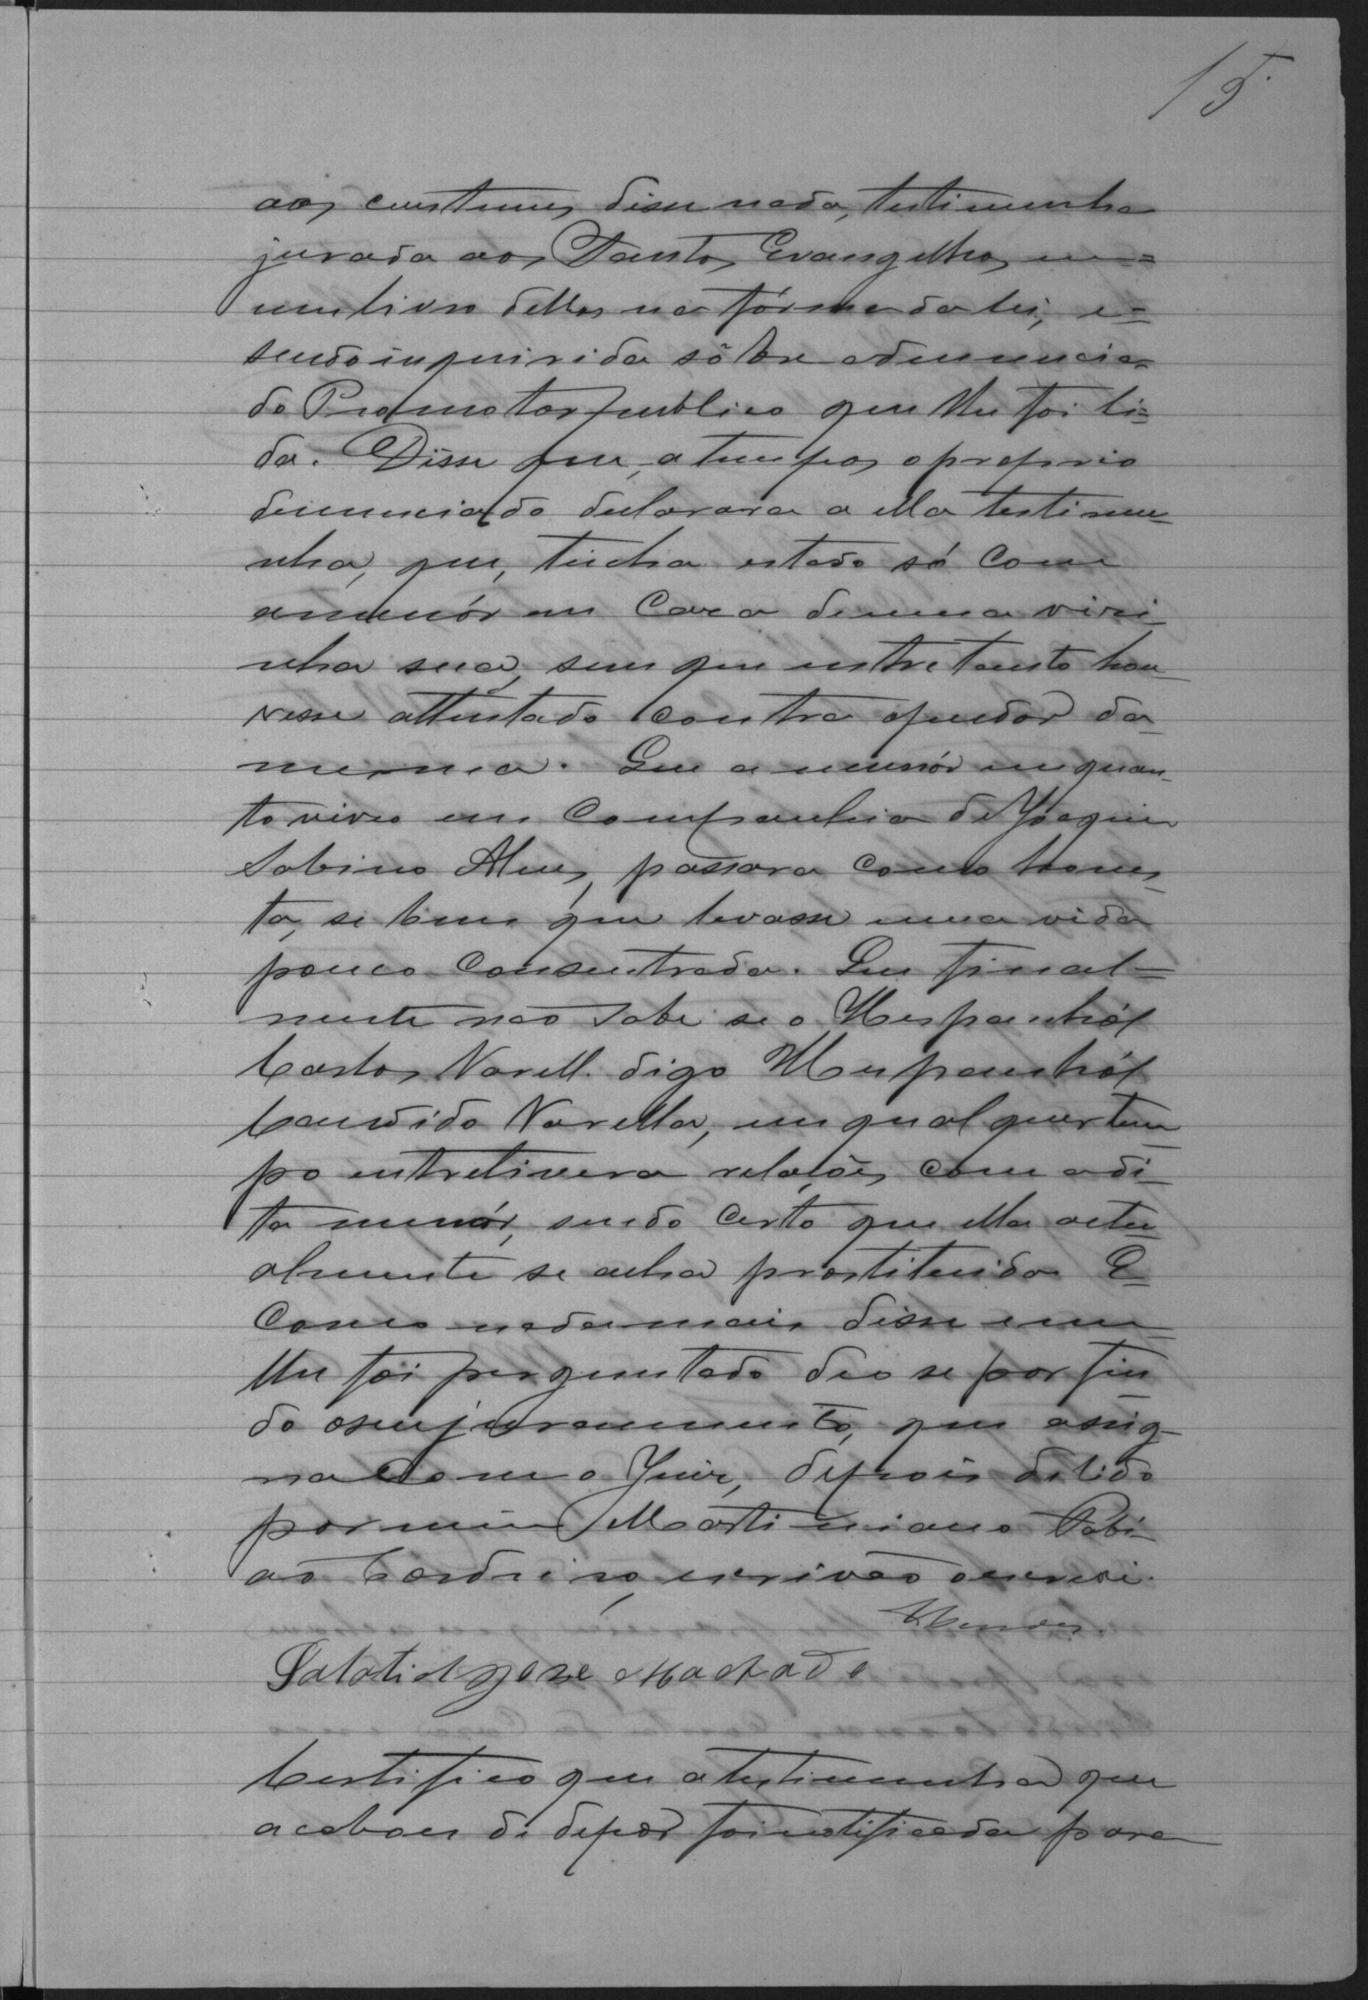 15
aos custumes disse nada, testimunha
jurada aos Santos Evangelhos em=
um livro delles na fórma da lei, e=
sendo inquirida sôbre a denuncia
do Promotor publico que lhe foi li=
da. Disse que, a tempos o proprio
denunciado declarara a ella testimu=
nha, que, tinha estado só com
a menór em casa de uma visi-
nha sua, sem que entretanto hou-
vesse attentado contra o pudor da
mesma. Que a menór em quan-
to viveo em companhia de Joaquim
Sabino Alves, passara como hones-
ta, se bem que levasse uma vida
pouco consentrada. Que final=
mente não sabe se o Hespanhól
Carlos Narell. digo Hespanhól
Candido Narella, em qual quer tem-
po entretivera relações com a di-
ta menór, sendo certo que ella actu-
almente se acha prostituida E
como nada mais disse e nem
lhe foi perguntado deo se por fin-
do o seu juramento, que assig-
na com o Juiz, depois de lido
por mim Martiniano Tobi-
as Cordeiro, escrivão o escrevi.
Mendes.
Salatiel Jose Machado
Certifico que a testimunha que
acabou de depôr foi notificada para